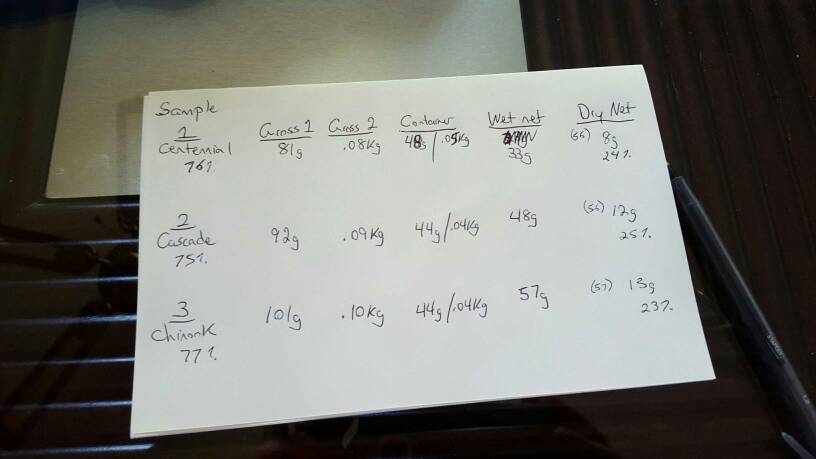 Sample
Gross 1 Gross 2 Container Wet net Dry Net
1
Centennial 81g .08Kg 48g/.05Kg 33g (56) 8g
76% 24%
2
Cascade 92g .09Kg 44g/.04Kg 48g (56) 12g
75% 25%
3
Chinook 101g .10Kg 44g/.04Kg 57g (57) 13g
77% 23%